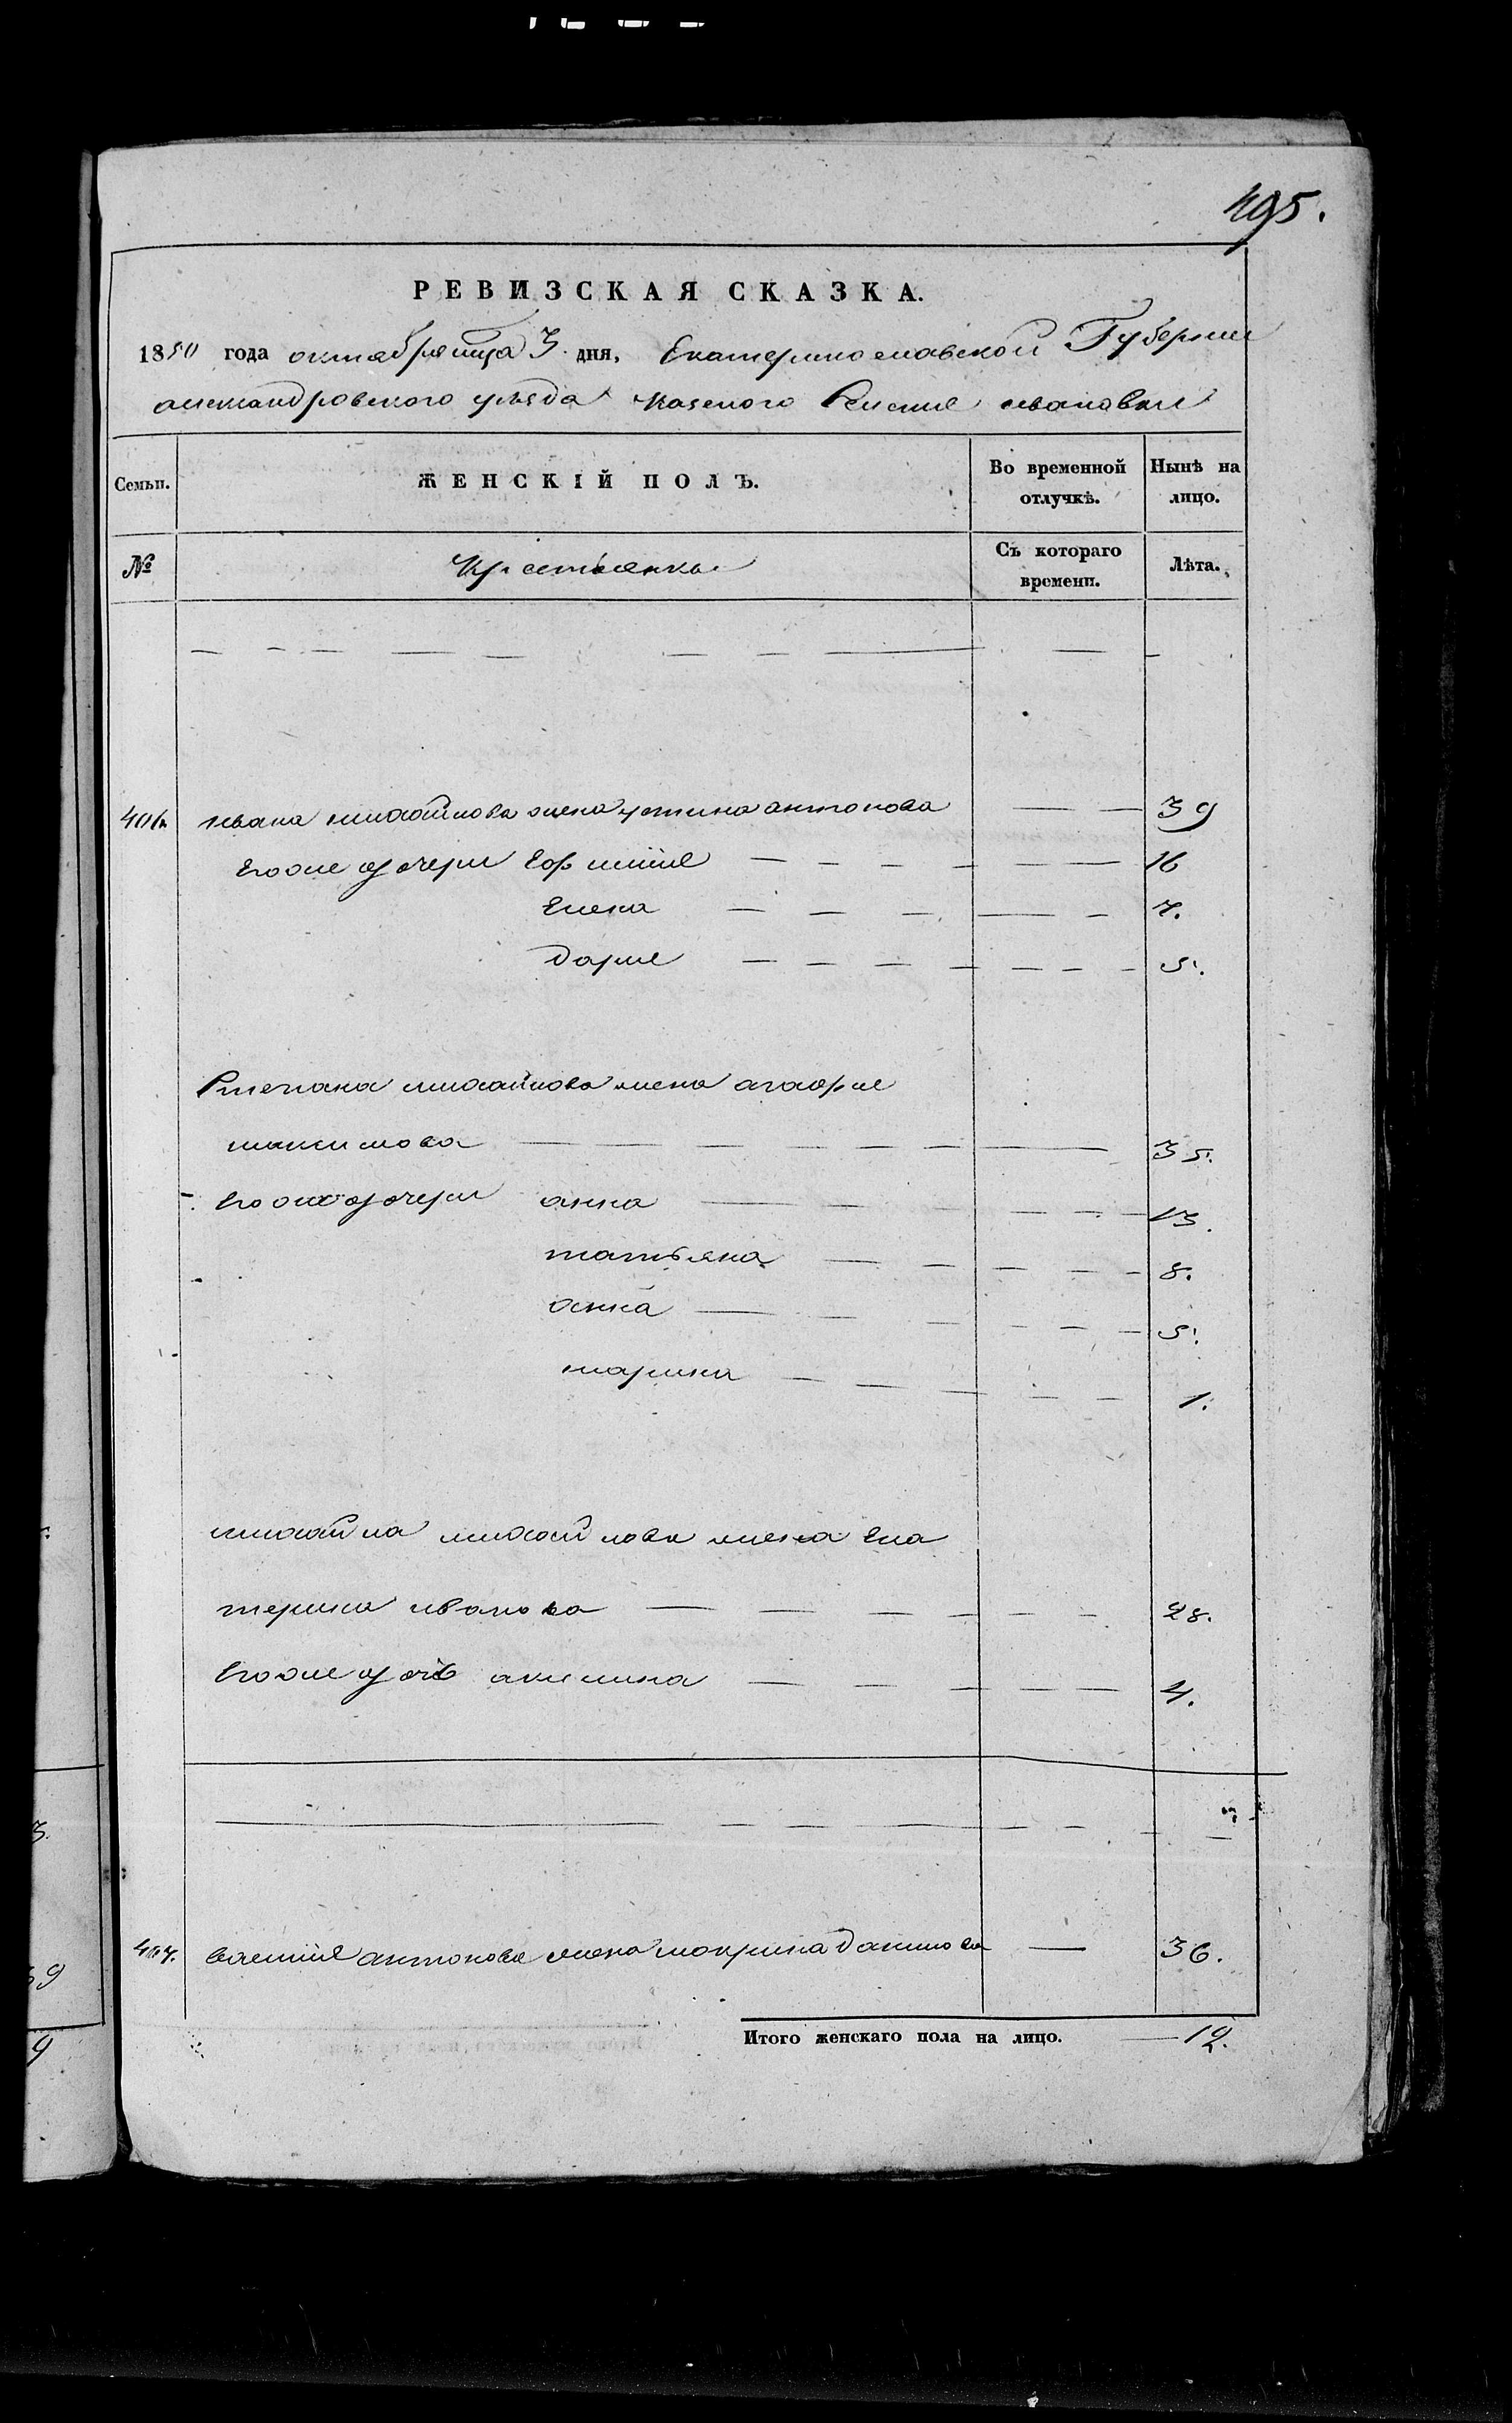 495.
РЕВИЗСКАЯ СКАЗКА.
1850 года октября мца 3 дня, Екатеринославской Губернии
александровского уезда казеного Селения ивановки
Семьи. ЖЕНСКІЙ ПОЛЪ. Во временной отлучкѣ. Нынѣ на лицо.
№ Крестьянки Съ котораго времени. Лѣта.
406 ивана михайлова жена устина антонова 39
Егоже дочери Ефимия 16
Елена 7.
дария 5.
Степана михайлова жена агафия
максимова 35.
Егоже дочери анна 13.
татьяна 8.
анна 5.
марина 1.
михайла михайлова жена Ека
терина иванова 28.
Егоже дочь акилина 4.
407. василия антонова жена мокрина данилова 36.
Итого женскаго пола на лицо. 12.